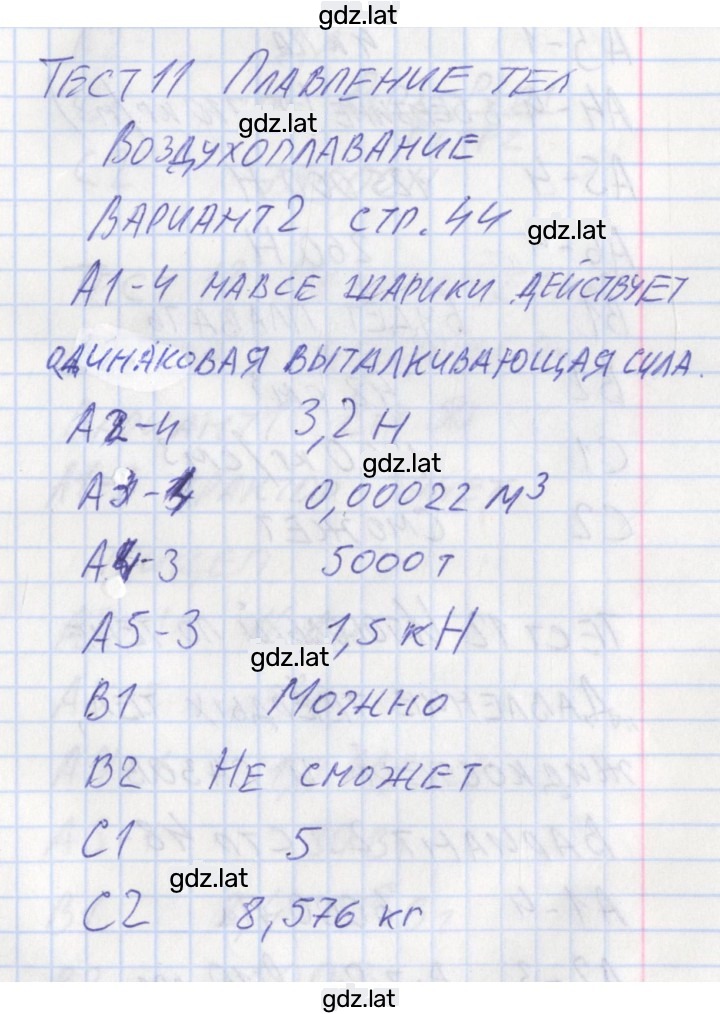 gdz.lat
ТЕСТ 11 ПЛАВЛЕНИЕ ТЕЛ
gdz.lat
ВОЗДУХОПЛАВАНИЕ
ВАРИАНТ 2 СТР. 44
gdz.lat
А1-4 НАВСЕ ШАРИКИ ДЕЙСТВУЕТ
ОДИНАКОВАЯ ВЫТАЛКИВАЮЩАЯ СИЛА.
А2-4 3,2 Н
gdz.lat
А3-4 0,00022 м³
А4-3 5000 т
А5-3 1,5 кН
gdz.lat
В1 МОЖНО
В2 НЕ СМОЖЕТ
С1 5
gdz.lat
С2 8,576 кг
gdz.lat